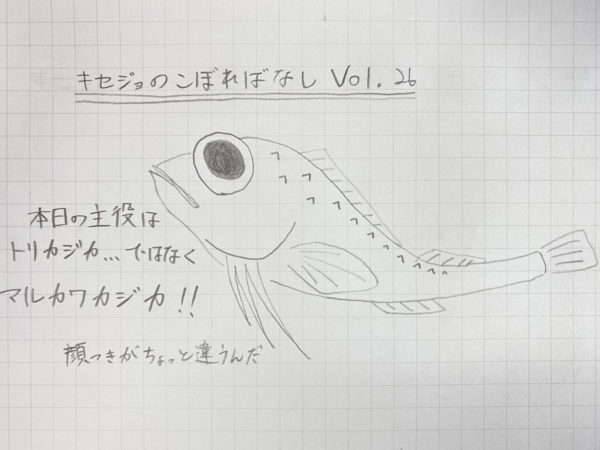 キセジョのこぼればなし Vol.26
本日の主役は
トリカジカ...ではなく
マルカワカジカ!!
顔つきがちょっと違うんだ